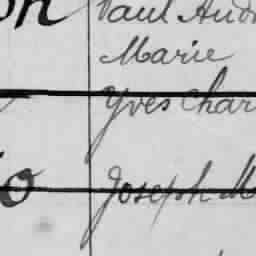 Paul And
Marie
Yves Char
Joseph M